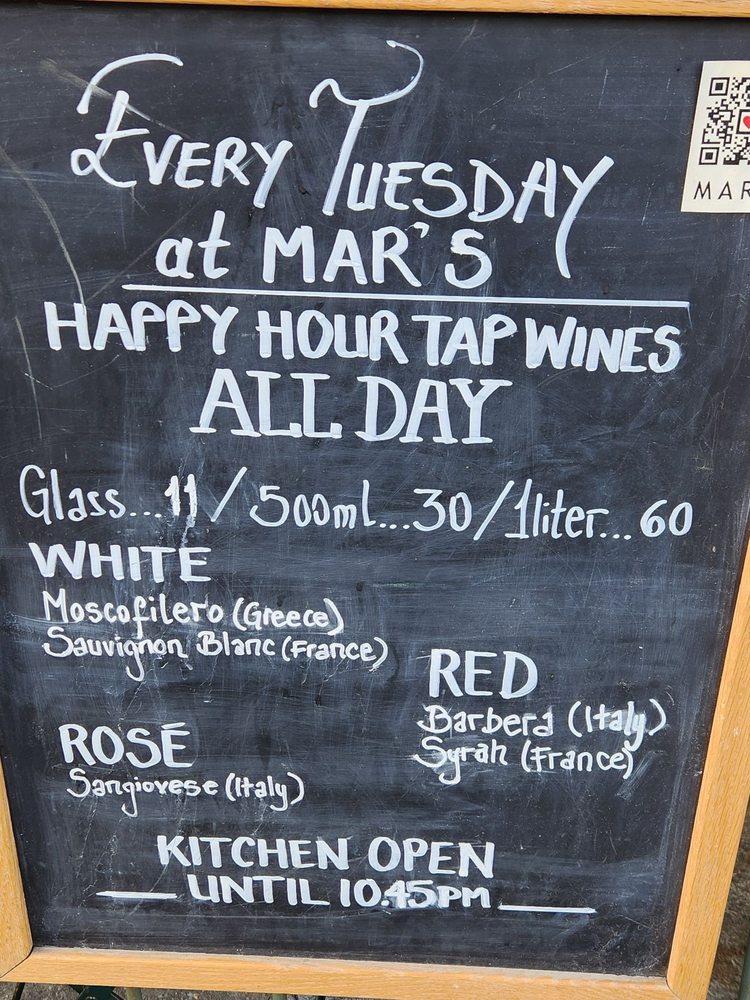 EVERY TUESDAY
at MAR'S
HAPPY HOUR TAP WINES
ALL DAY
Glass...11/500ml...30/1liter...60
WHITE
Moscofilero (Greece)
Sauvignon Blanc (France)
RED
Barbera (Italy)
Syrah (France)
ROSÉ
Sangiovese (Italy)
KITCHEN OPEN
UNTIL 10.45PM
MAR